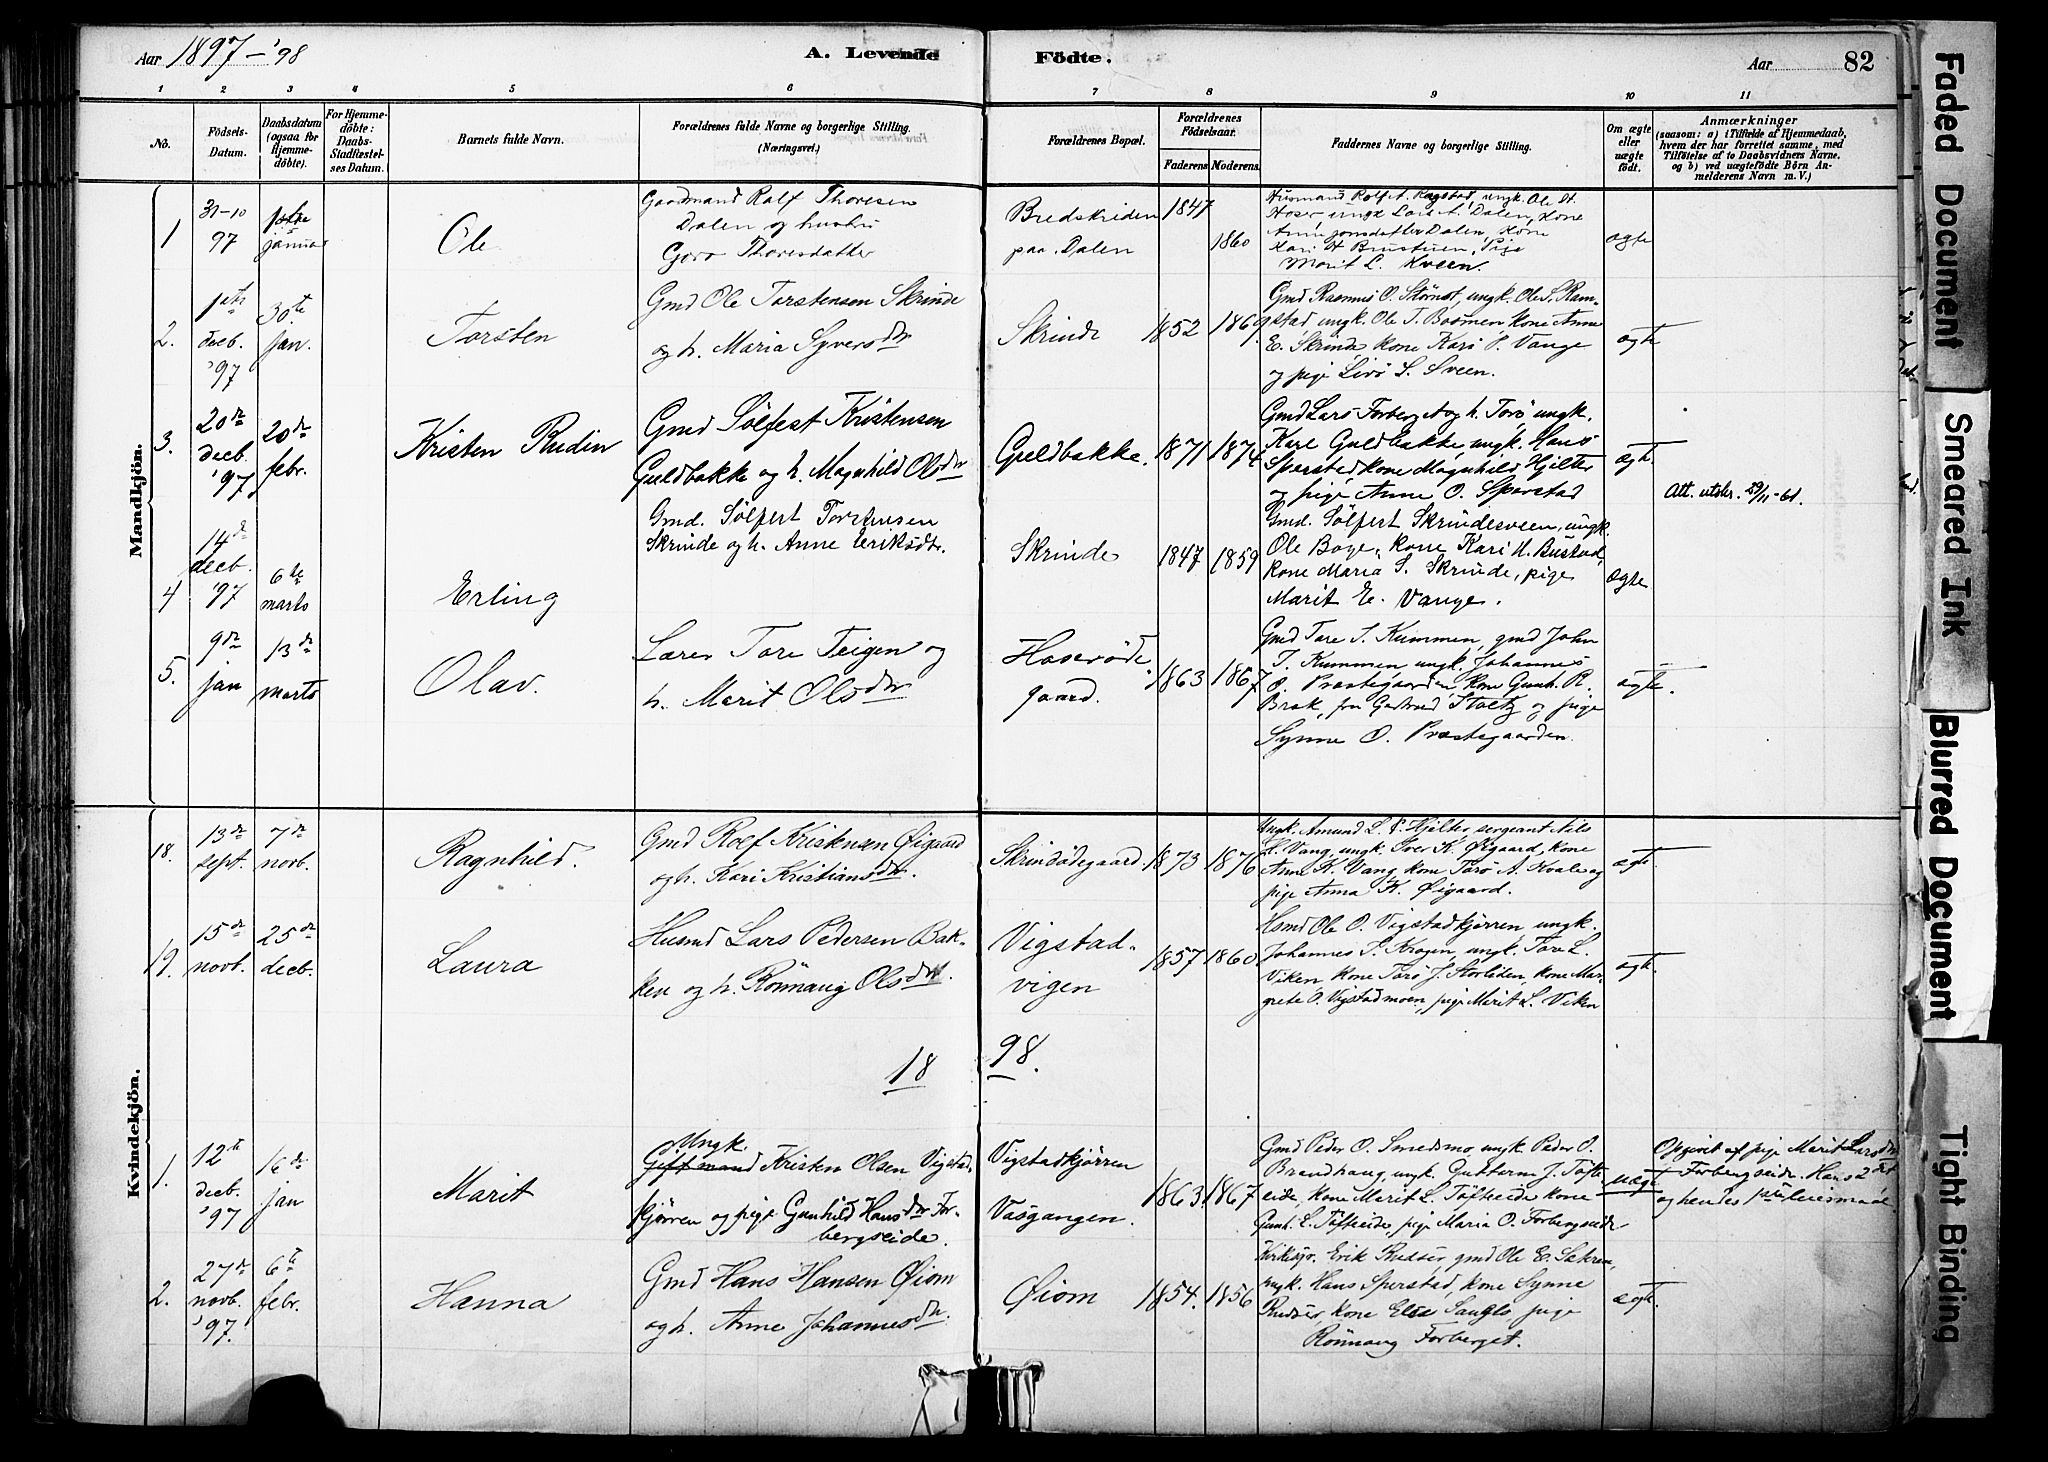 Aar 1897-'98
A. Levende
Födte.
Aar
82
1 2 3 4 5 6 7 8 9 10 11
No.
Födsels-
Datum.
Daabsdatum
(ogsaa for
Hjemme-
döbte).
For Hjemme-
döbte:
Daabs-
Stadfæstel-
ses Datum.
Barnets fulde Navn.
Forældrenes fulde Navne og borgerlige Stilling.
(Næringsvei.)
Forældrenes Bopæl.
Forældrenes
Födselsaar.
Faderens Moderens
Faddernes Navne og borgerlige Stilling.
Om ægte
eller
uægte
födt.
Anmærkninger
(saasom: a) i Tilfælde af Hjemmedaab,
hvem der har forrettet samme, med
Tilföielse af to Daabsvidners Navne,
og b) ved uægtefödte Börn An-
melderens Navn m. V.)
Mandkjön.
1
31-10
97
januar
Ole
Gaardmand Rolf Thoresen
Dalen og hustru
Goro Thoresdatter
Bredskriden
paa Dalen
1847
1860
Husmand Rolf A. Ragstad, ungk. Ole
ungk Lars A. Dalen, Kone
Anne Jonsdatter Dalen, Kone
Kari H Brustuen, Pige
Marit L. Kveen.
ægte
2.
decb.
'97
30te
jan.
Torsten
Gmd Ole Torstensen Skrinde
og h. Maria Syversdtr
Skrinde
1852 1869
Gmd Rasmus O. Stömst, ungk. Ole S. Ram-
stad, ungk. Ole T. Boömen, kone Anne
E. Skrinde kone Kari P. Vange
og pige Livö S. Sveen.
ægte
3.
20de
decb.
'97
20de
febr.
Kristen Rudin
Gmd Sölfest Kristensen
Guldbakke og h. Magnhild Olsdtr
Guldbakke.
1871 1874
Gmd Lars Forberget og h. Torö ungk.
Karl Guldbakke, ungk. Hans
Sperstad, kone Magnhild Hjelter
og pige Anne O. Sperstad
ægt.
Att. utskr. 29/11-61.
4
14de
decb.
'97
6te
marts
Erling
Gmd. Sölfest Torstensen
Skrinde og h. Anne Eriksdtr.
Skrinde
1847 1859
Gmd. Sölfest Skrindesveen, ungk.
Ole Boge, kone Kari H. Bustad,
kone Maria S. Skrinde, pige
Marit E. Vange.
ægte
5.
9de
jan
13de
marts
Olav.
Lærer Tore Teigen og
h. Marit Olsdtr
Haseröde
gaard.
1863 1867
Gmd Tore I. Kummen, gmd John
T. Kummen ungk. Johannes
O. Præstegaarden kone Gunh. R.
Brak, fru Gertrud Stoltz og pige
Synne O. Præstegaarden.
ægte.
Kvindekjön.
18.
13de
sept.
7de
novb.
Ragnhild.
Gmd Rolf Kristensen Øigaard
og h. Kari Kristiansdtr.
Skrindödegaard.
1873 1876
Ungk. Amund L. P. Hjelter, sergeant Nils
L. Vang, ungk. Iver K. Øigaard, kone
Anne K. Vang kone Torö A. Kvale og
pige Anna K. Øigaard.
ægt.
19.
15de
novb.
25de
decb.
Laura
Husmd Lars Pedersen Bak-
ken og h. Rönnaug Olsdtr.
Vigstad-
vigen
1857 1860.
Hsmd Ole O. Vigstadkjörren ungk.
Johannes S. Krogen, ungk. Tore L.
Viken kone Torö J. Storliden, kone Mar-
grete O. Vigstadmoen, pige Marit L. Viken
ægt.
18 98.
1.
12te
decb.
'97
16de
jan
Marit
Ungk.
Giftmand Kristen Olsen Vigstad-
kjörren og pige Gunhild Hansdtr For-
bergseide.
Vigstadkjörren
Vasgangen.
1863. 1867
Gmd Peder O. Smedsmo ungk. Peder O.
Brandhaug, ungk. Guttorm J. Töfte-
eide, kone Marit L. Töfteeide kone
Gunh. L. Töfteeide, pige Maria O. Forbergseide
uægt.
Opgivet af pige Marit Larsdtr
Forbergseide. Hans 2det
og hendes
2.
27de
novb.
'97.
6te
febr.
Hanna
Gmd Hans Hansen Øiom
og h. Anne Johannesdtr.
Øiom
1854. 1856
Kirkesgr. Erik Rudser, gmd Ole E. Sækren,
ungk. Hans Sperstad, kone Synne
Rudser, kone Else Sangls, pige
Rönnaug Forberget.
ægt.
Faded Document
Smeared Ink
Blurred Document
Tight Binding